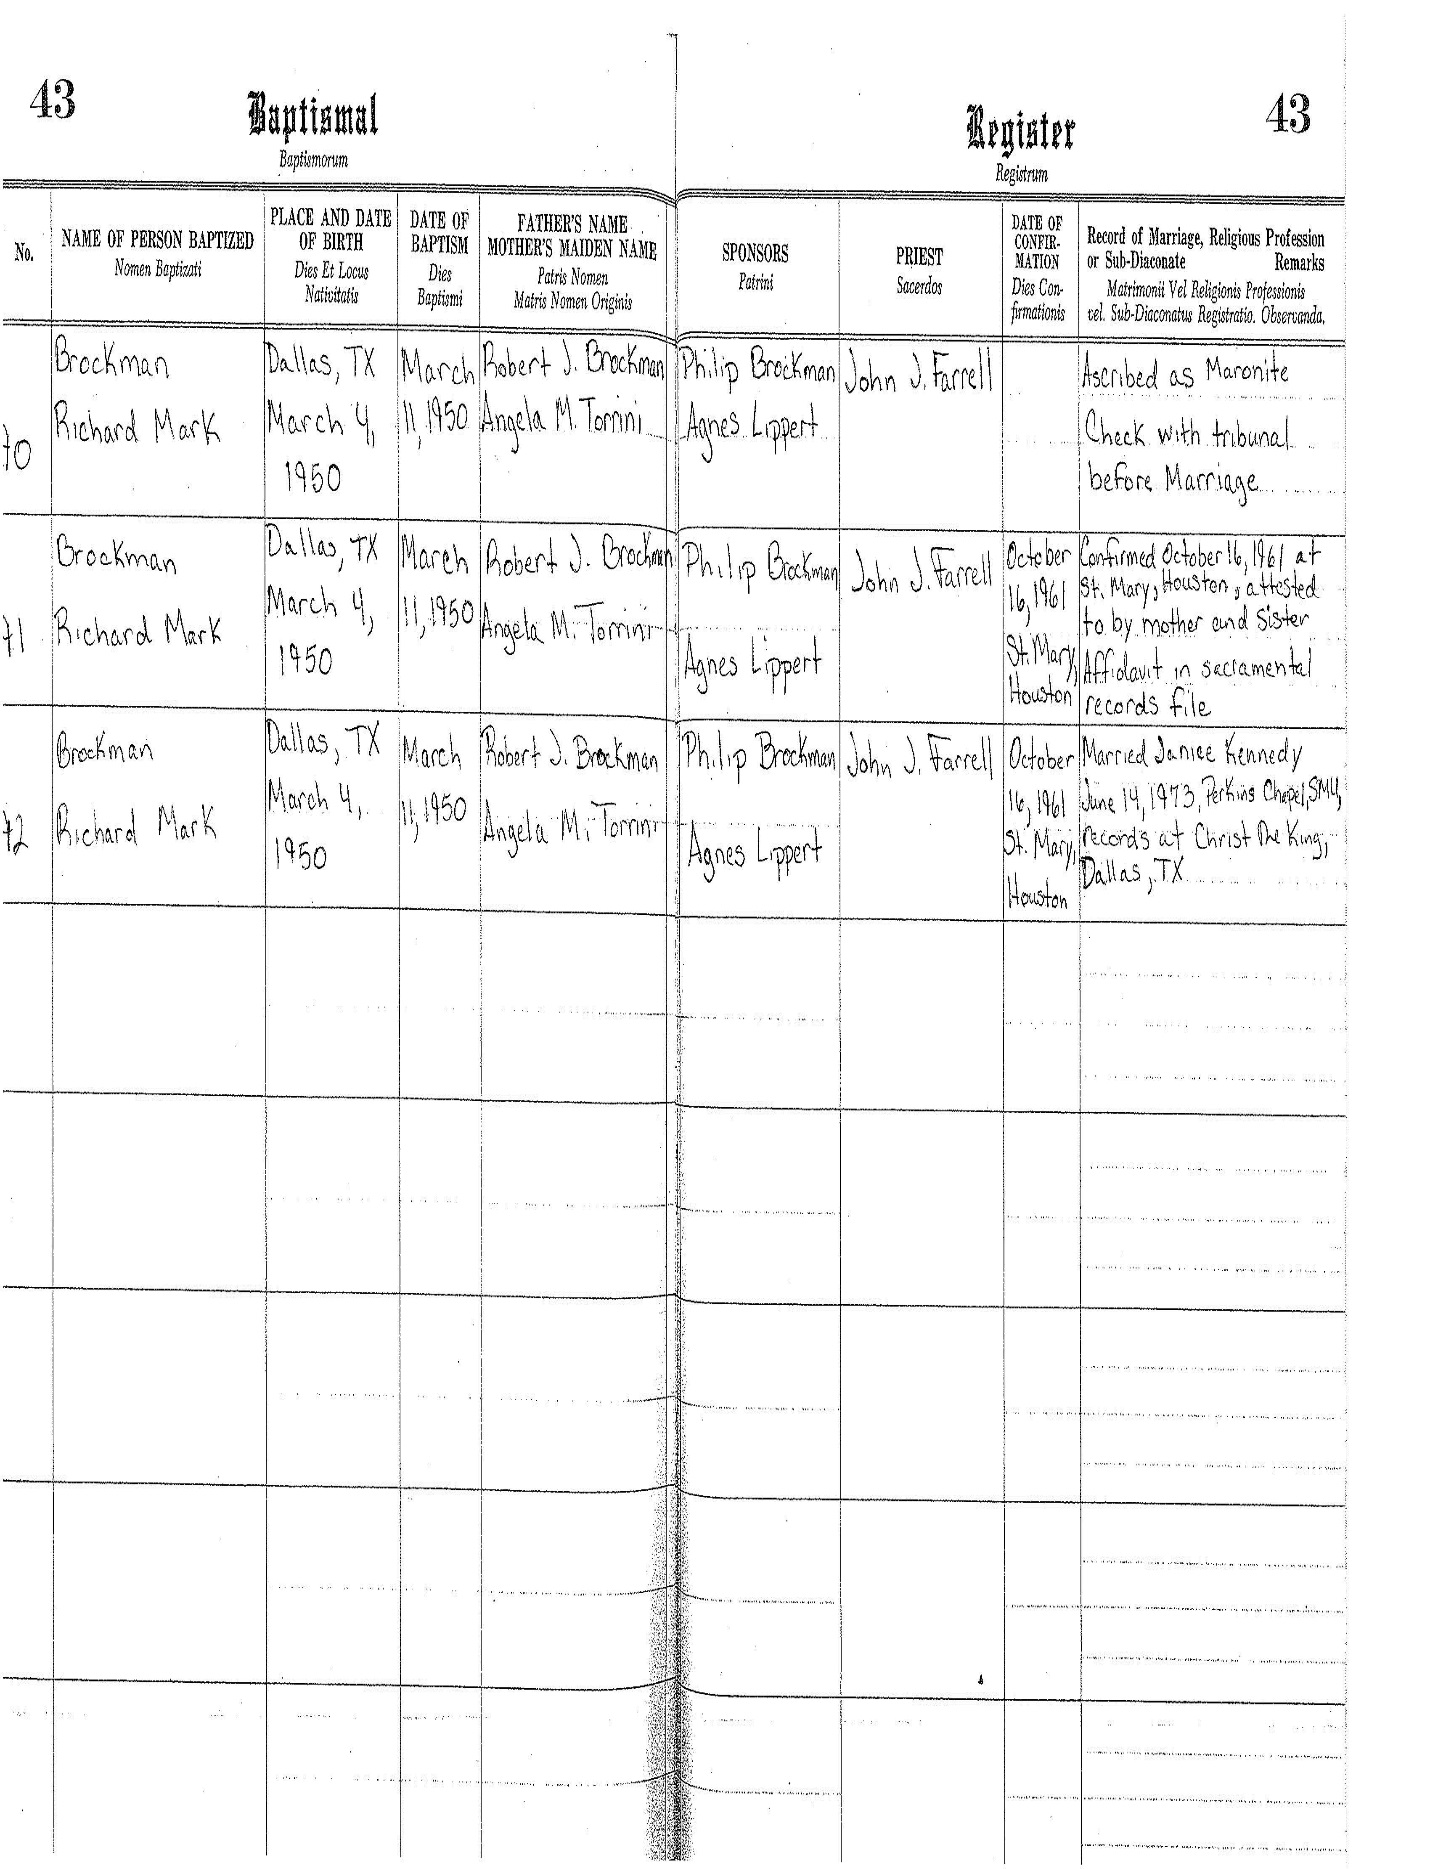 43
Baptismal
Baptismorum
Register
Registrum
43
No.
NAME OF PERSON BAPTIZED
Nomen Baptizati
PLACE AND DATE
OF BIRTH
Dies Et Locus
Nativitatis
DATE OF
BAPTISM
Dies
Baptismi
FATHER'S NAME
MOTHER'S MAIDEN NAME
Patris Nomen
Matris Nomen Originis
SPONSORS
Patrini
PRIEST
Sacerdos
DATE OF
CONFIR-
MATION
Dies Con-
firmationis
Record of Marriage, Religious Profession
or Sub-Diaconate Remarks
Matrimonii Vel Religionis Professionis
vel. Sub-Diaconatus Registratio. Observanda.
70
Brockman
Richard Mark
Dallas, TX
March 4,
1950
March
11, 1950
Robert J. Brockman
Angela M. Torrini
Philip Brockman
Agnes Lippert
John J. Farrell
Ascribed as Maronite
Check with tribunal
before Marriage
71
Brockman
Richard Mark
Dallas, TX
March 4,
1950
March
11, 1950
Robert J. Brockman
Angela M. Torrini
Philip Brockman
Agnes Lippert
John J. Farrell
October
16, 1961
St. Mary,
Houston
Confirmed October 16, 1961 at
St. Mary, Houston, attested
to by mother and Sister
Affidavit in sacramental
records file
72
Brockman
Richard Mark
Dallas, TX
March 4,
1950
March
11, 1950
Robert J. Brockman
Angela M. Torrini
Philip Brockman
Agnes Lippert
John J. Farrell
October
16, 1961
St. Mary,
Houston
Married Janice Kennedy
June 14, 1973, Perkins Chapel, SMU,
records at Christ the King,
Dallas, TX